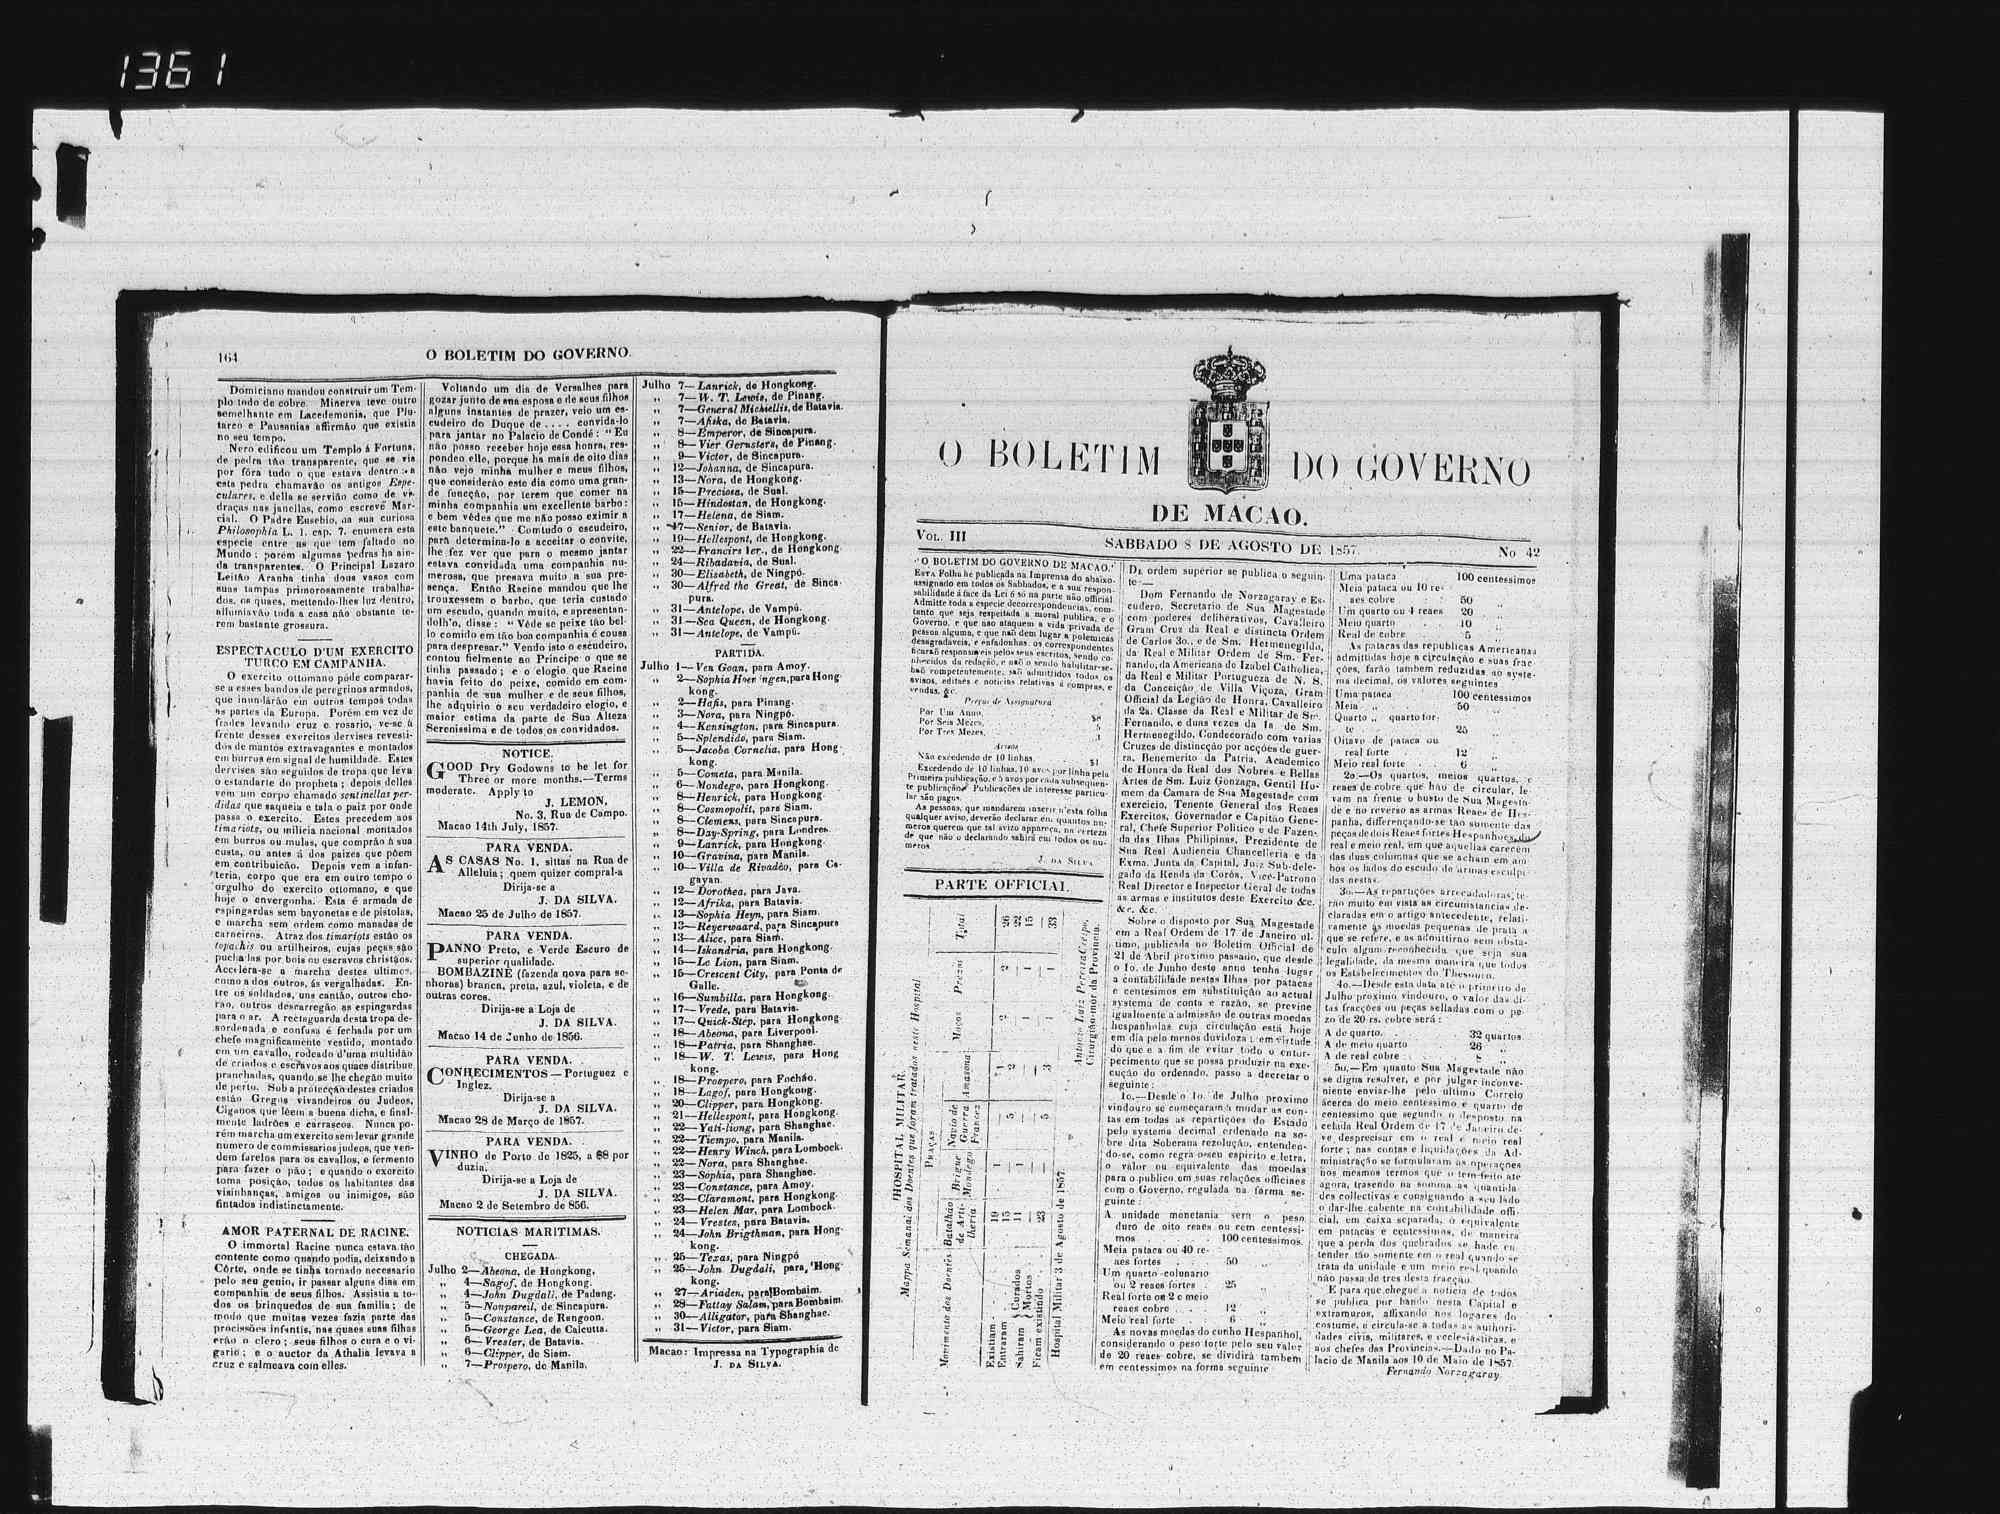 1361
164
O BOLETIM DO GOVERNO.
Domiciano mandou construir um Tem-
plo todo de cobre. Minerva teve outro
semelhante em Lacedemonia, que Plu-
tarco e Pausanias affirmão que existia
no seu tempo.
Nero edificou um Templo á Fortuna,
de pedra tão transparente, que se via
por fóra tudo o que estava dentro: a
esta pedra chamavão os antigos Espe-
culares, e della se servião como de vi-
draças nas janellas, como escreve Mar-
cial. O Padre Eusebio, na sua curiosa
Philosophia L. 1. cap. 7. enumera esta
especie entre as que tem faltado no
Mundo; porém algumas pedras ha ain-
da transparentes. O Principal Lazaro
Leitão Aranha tinha dous vasos com
suas tampas primorosamente trabalha-
dos, os quaes, mettendo-lhes luz dentro,
allumiavão toda a casa não obstante te-
rem bastante grossura.
ESPECTACULO D'UM EXERCITO
TURCO EM CAMPANHA.
O exercito ottomano póde comparar-
se a esses bandos de peregrinos armados,
que inundárão em outros tempos todas
as partes da Europa. Porém em vez de
frades levando cruz e rosario, ve-se á
frente desses exercitos dervises revesti-
dos de mantos extravagantes e montados
em burros em signal de humildade. Estes
dervises são seguidos de tropa que leva
o estandarte do propheta; depois delles
vem um corpo chamado sentinellas per-
didas que saqueia e tala o paiz por onde
passa o exercito. Estes precedem aos
timariots, ou milicia nacional montados
em burros ou mulas, que comprão á sua
custa, ou antes á dos paizes que põem
em contribuicão. Depois vem a infan-
teria, corpo que era em outro tempo o
orgulho do exercito ottomano, e que
hoje o envergonha. Esta é armada de
espingardas sem bayonetas e de pistolas,
e marcha sem ordem como manadas de
carneiros. Atraz dos timariots estão os
topachis ou artilheiros, cujas peças são
puchadas por bois ou escravos christãos.
Accelera-se a marcha destes ultimos,
como a dos outros, ás vergalhadas. En-
tre os soldados, uns cantão, outros cho-
rão, outros descarregão as espingardas
para o ar. A rectaguarda desta tropa de-
sordenada e confusa é fechada por um
chefe magnificamente vestido, montado
em um cavallo, rodeado d'uma multidão
de criados e escravos aos quaes distribue
pranchadas, quando se lhe chegão muito
de perto. Sob a protecção destes criados
estão Gregos vivandeiros ou Judeos,
Ciganos que lêem a buena dicha, e final-
mente ladrões e carrascos. Nunca po-
rém marcha um exercito sem levar grande
numero de commissarios judeos, que ven-
dem farelos para os cavallos, e fermento
para fazer o pão; e quando o exercito
toma posição, todos os habitantes das
visinhanças, amigos ou inimigos, são
fintados indistinctamente.
AMOR PATERNAL DE RACINE.
O immortal Racine nunca estava tão
contente como quando podia, deixando a
Côrte, onde se tinha tornado necessario
pelo seu genio, ir passar alguns dias em
companhia de seus filhos. Assistia a to-
dos os brinquedos de sua familia; de
modo que muitas vezes fazia parte das
procissões infantis, nas quaes suas filhas
erão o clero; seus filhos o cura e o vi-
gario; e o auctor da Athalia levava a
cruz e salmeava com elles.
Voltando um dia de Versalhes para
gozar junto de sua esposa e de seus filhos
alguns instantes de prazer, veio um es-
cudeiro do Duque de . . . . convida-lo
para jantar no Palacio de Condé: "Eu
não posso receber hoje essa honra, res-
pondeo elle, porque ha mais de oito dias
não vejo minha mulher e meus filhos,
que considerão este dia como uma gran-
de funcção, por terem que comer na
minha companhia um excellente barbo:
e bem vêdes que me não posso eximir a
este banquete." Comtudo o escudeiro,
para determina-lo a acceitar o convite,
lhe fez ver que para o mesmo jantar
estava convidada uma companhia nu-
merosa, que presava muito a sua pre-
sença. Então Racine mandou que lhe
trouxessem o barbo, que teria custado
um escudo, quando muito, e apresentan-
dolh'o, disse: "Vêde se peixe tão bel-
lo comido em tão boa companhia é cousa
para despresar." Vendo isto o escudeiro,
contou fielmente ao Principe o que se
tinha passado; e o elogio que Racine
havia feito do peixe, comido em com-
panhia de sua mulher e de seus filhos,
lhe adquirio o seu verdadeiro elogio, e
maior estima da parte de Sua Alteza
Serenissima e de todos os convidados.
NOTICE.
GOOD Dry Godowns to be let for
Three or more months.—Terms
moderate. Apply to
J. LEMON,
No. 3, Rua de Campo.
Macao 14th July, 1857.
PARA VENDA.
AS CASAS No. 1, sittas na Rua de
Alleluia; quem quizer compral-a
Dirija-se a
J. DA SILVA.
Macao 25 de Julho de 1857.
PARA VENDA.
PANNO Preto, e Verde Escuro de
superior qualidade.
BOMBAZINE (fazenda nova para se-
nhoras) branca, preta, azul, violeta, e de
outras cores.
Dirija-se a Loja de
J. DA SILVA.
Macao 14 de Junho de 1856.
PARA VENDA.
CONHECIMENTOS — Portuguez e
Inglez.
Dirija-se a
J. DA SILVA.
Macao 28 de Março de 1857.
PARA VENDA.
VINHO de Porto de 1825, a $8 por
duzia.
Dirija-se a Loja de
J. DA SILVA.
Macao 2 de Setembro de 856.
NOTICIAS MARITIMAS.
CHEGADA.
Julho 2—Abeona, de Hongkong.
,, 4—Sagof, de Hongkong.
,, 4—John Dugdall, de Padang.
,, 5—Nonpareil, de Sincapura.
,, 5—Constance, de Rangoon.
,, 5—George Lea, de Calcutta.
,, 6—Vrester, de Batavia.
,, 6—Clipper, de Siam.
,, 7—Prospero, de Manila.
Julho 7—Lanrick, de Hongkong.
,, 7—W. T. Lewis, de Pinang.
,, 7—General Michiellis, de Batavia.
,, 7—Afiska, de Batavia.
,, 8—Emperor, de Sincapura.
,, 8—Vier Gerusters, de Pinang.
,, 9—Victor, de Sincapura.
,, 12—Johanna, de Sincapura.
,, 13—Nora, de Hongkong.
,, 15—Preciosa, de Sual.
,, 15—Hindostan, de Hongkong.
,, 17—Helena, de Siam.
,, 17—Senior, de Batavia.
,, 19—Hellespont, de Hongkong.
,, 22—Francirs 1er., de Hongkong.
,, 24—Ribadavia, de Sual.
,, 30—Elisabeth, de Ningpó.
,, 30—Alfred the Great, de Sinca-
pura.
,, 31—Antelope, de Vampú.
,, 31—Sea Queen, de Hongkong.
,, 31—Antelope, de Vampú.
PARTIDA.
Julho 1—Ven Goan, para Amoy.
,, 2—Sophia para Hong-
kong.
,, 2—Hafis, para Pinang.
,, 3—Nora, para Ningpó.
,, 4—Kensington, para Sincapura.
,, 5—Splendido, para Siam.
,, 5—Jacoba Cornelia, para Hong-
kong.
,, 5—Cometa, para Manila.
,, 6—Mondego, para Hongkong.
,, 8—Henrick, para Hongkong.
,, 8—Cosmopolit, para Siam.
,, 8—Clemens, para Sincapura.
,, 8—Day-Spring, para Londres.
,, 9—Lanrick, para Hongkong.
,, 10—Gravina, para Manila.
,, 10—Villa de Rivadêo, para Ca-
gayan.
,, 12—Dorothea, para Java.
,, 12—Afrika, para Batavia.
,, 13—Sophia Heyn, para Siam.
,, 13—Reyerwaard, para Sincapura
,, 13—Alice, para Siam.
,, 14—Iskandria, para Hongkong.
,, 15—Le Lion, para Siam.
,, 15—Crescent City, para Ponta de
Galle.
,, 16—Sumbilla, para Hongkong.
,, 17—Vrede, para Batavia.
,, 17—Quick-Step, para Hongkong.
,, 18—Abeona, para Liverpool.
,, 18—Patria, para Shanghae.
,, 18—W. T. Lewis, para Hong
kong.
,, 18—Prospero, para Fochão.
,, 18—Lagof, para Hongkong.
,, 20—Clipper, para Hongkong.
,, 21—Hellespont, para Hongkong.
,, 22—Yati-liong, para Shanghae.
,, 22—Tiempo, para Manila.
,, 22—Henry Winch, para Lombock.
,, 22—Nora, para Shanghae.
,, 23—Sophia, para Shanghae.
,, 23—Constance, para Amoy.
,, 23—Claramont, para Hongkong.
,, 23—Helen Mar, para Lombock.
,, 24—Vrestes, para Batavia.
,, 24—John Brigthman, para Hong-
kong.
,, 25—Texas, para Ningpó
,, 25—John Dugdall, para Hong-
kong.
,, 27—Ariaden, para Bombaim.
,, 28—Fattay Salam, para Bombaim.
,, 30—Alligator, para Shanghae.
,, 31—Victor, para Siam.
Macao: Impressa na Typographia de
J. DA SILVA.
O BOLETIM DO GOVERNO
DE MACAO.
VOL. III
SABBADO 8 DE AGOSTO DE 1857.
No 42
'O BOLETIM DO GOVERNO DE MACAO.'
ESTA Folha he publicada na Imprensa do abaixo-
assignado em todos os Sabbados, e a sua respon-
sabilidade á face da Lei é só na parte não official
Admitte toda a especie decorrespondencias, com-
tanto que seja respeitada a moral publica, e o
Governo, e que nao ataquem a vida privada de
pessoa alguma, e que naõ dem lugar a polemicas
desagradaveis, e enfadonhas: os correspondentes
ficaraõ responsiveis pelos seus escritos, sendo co-
nhecidos da redação, e naõ o sendo habilitar-se-
haõ competentemente, saõ admittidos todos os
avisos, editaes e noticias relativas á compras, e
vendas, &c.
Preços de Assignatura
Por Um Anno, $8
Por Seis Mezes, 5
Por Tres Mezes, 3
Avisos
Não excedendo de 10 linhas. $1
Excedendo de 10 linhas, 10 avos por linha pela
Primeira publicação, e 5 avos por cada subsequen-
te publicação. Publicações de interesse particu-
lar são pagas.
As pessoas, que mandarem inserir n'esta folha
qualquer aviso, deverão declarar em quantos nu-
meros querem que tal aviso appareça, na certeza
de que não o declarando sahirá em todos os nu-
meros
J. DA SILVA
PARTE OFFICIAL.
HOSPITAL MILITAR.
Mappa Semanal dos Doentes que foram tratados neste Hospital
PRAÇAS
Movimento dos Doentes | Batalhão de Arti-lheria | Brigue Mondego | Navio de Guerra Francez | Amazona | Moços | Prezos | Total
Existiam . 19 1 — 1 2 2 26
Entraram . 15 — 5 2 — — 22
Sahiram { Curados 11 1 — — 1 1 15
{ Mortos — — — — — — —
Ficam existindo . 23 — 5 3 1 1 33
Hospital Militar 3 de Agosto de 1857.
Antonio Luiz Pereira Crespo,
Cirurgião-mor da Provincia.
DE ordem superior se publica o seguin-
te—
Dom Fernando de Norzagaray e Es-
cudero, Secretario de Sua Magestade
com poderes deliberativos, Cavalleiro
Gram Cruz da Real e distincta Ordem
de Carlos 3o., e de Sm. Hermenegildo,
da Real e Militar Ordem de Sm. Fer-
nando, da Americana de Izabel Catholica,
da Real e Militar Portugueza de N. S.
da Conceição de Villa Viçoza, Gram
Official da Legião de Honra, Cavalleiro
da 2a. Classe da Real e Militar de Sm.
Fernando, e duas vezes da 1a de Sm.
Hermenegildo, Condecorado com varias
Cruzes de distincção por acções de guer-
ra, Benemerito da Patria, Academico
de Honra da Real dos Nobres e Bellas
Artes de Sm. Luiz Gonzaga, Gentil Ho-
mem da Camara de Sua Magestade com
exercicio, Tenente General dos Reaes
Exercitos, Governador e Capitão Gene-
ral, Chefe Superior Politico e de Fazen-
da das Ilhas Philipinas, Prezidente de
Sua Real Audiencia Chancelleria e da
Exma. Junta da Capital, Juiz Sub-dele-
gado da Renda da Corôa, Vice-Patrono
Real Director e Inspector Geral de todas
as armas e institutos deste Exercito &c.
&c. &c.
Sobre o disposto por Sua Magestade
em a Real Ordem de 17 de Janeiro ul-
timo, publicada no Boletim Official de
21 de Abril proximo passado, que desde
o 1o. de Junho deste anno tenha lugar
a contabilidade nestas Ilhas por patacas
e centesimos em substituição ao actual
systema de conta e razão, se previne
igualmente a admissão de outras moedas
hespanholas cuja circulação está hoje
em dia pelo menos duvidoza; em virtude
do que e a fim de evitar todo o entor-
pecimento que se possa produzir na exe-
cução do ordenado, passo a decretar o
seguinte:
1o.—Desde o 1o. de Julho proximo
vindouro se começaram á mudar as con-
tas em todas as repartições do Estado
pelo systema decimal ordenado na so-
bre dita Soberana rezolução, entenden-
do-se, como regra osseu espirito e letra,
o valor ou equivalente das moedas
para o publico em suas relações officiaes
com o Governo, regulada na fórma se-
guinte:
A unidade monetaria será o peso
duro de oito reaes ou cem centessi-
mos 100 centessimos.
Meia pataca ou 40 re-
aes fortes . . 50 ,,
Um quarto colunario
ou 2 reaes fortes . 25 ,,
Real forte ou 2 e meio
reaes cobre . . 12 ,,
Meio real forte . . 6 ,,
As novas moedas do cunho Hespanhol,
considerando o peso forte pelo seu valor
de 20 reaes cobre, se dividirá tambem
em centessimos na forma seguinte
Uma pataca 100 centessimos
Meia pataca ou 10 re-
aes cobre . 50 ,,
Um quarto ou 4 reaes 20 ,,
Meio quarto . . 10 ,,
Real de cobre . 5 ,,
As patacas das republicas Americanas
admittidas hoje a circulação e suas frac-
ções, farão tambem reduzidas ao syste-
ma decimal, os valores seguintes
Uma pataca 100 centessimos
Meia ,, 50 ,,
Quarto ,, quarto for-
te 25 ,,
Oitavo de pataca ou
real forte 12 ,,
Meio real forte . 6 ,,
2o.—Os quartos, meios quartos, e
reaes de cobre que hão de circular, le-
vam na frente o busto de Sua Magesta-
de e no reverso as armas Reaes de Hes-
panha, differençando-se tão somente das
peças de dois Reaes fortes Hespanhoes, do
real e meio real, em que aquellas carecem
das duas columnas que se acham em am-
bos os lados do escudo de armas esculpi-
das nestas.
3o.—As repartições arrecadadoras, te-
rão muito em vista as circunstancias de-
claradas em o artigo antecedente, relati-
vamente ás moedas pequenas de prata a
que se refere, e as admittirão sem obsta-
culo algum reconhecida que seja sua
legalidade, da mesma maneira que todos
os Estabelecimentos do Thesouro.
4o.—Desde esta data até o primeiro de
Julho proximo vindouro, o valor das di-
tas fracções ou peças selladas com o pe-
zo de 20 rs. cobre será:
A de quarto. 32 quartos
A de meio quarto 26 ,,
A de real cobre . . 8 ,,
5o.—Em quanto Sua Magestade não
se digna resolver, e por julgar inconve-
niente enviar-lhe pelo ultimo Correio
ácerca do meio centessimo e quarto de
centessimo que segundo o desposto na
citada Real Ordem de 17 de Janeiro de-
ve desprezar em o real e meio real
forte; nas contas e liquidações da Ad-
ministração se formularam as operações
nos mesmos termos que o tem feito até
agora, trasendo na somma as quantida-
des collectivas e consignando a seu lado
o dar-lhe cabente na contabilidade offi-
cial, em caixa separada, o equivalente
em patacas e centessimos, de maneira
que a perda dos quebrados se hade en-
tender tão somente em o real quando se
trata da unidade e um meio real quando
não passa de tres desta fracção.
E para que chegue a noticia de todos
se publica por bando nesta Capital e
extramuros, affixando nos logares do
costume, e circula-se a todas as authori-
dades civis, militares, e ecclesiasticas, e
aos chefes das Provincias.—Dado no Pa-
lacio de Manila aos 10 de Maio de 1857.
Fernando Norzagaray.